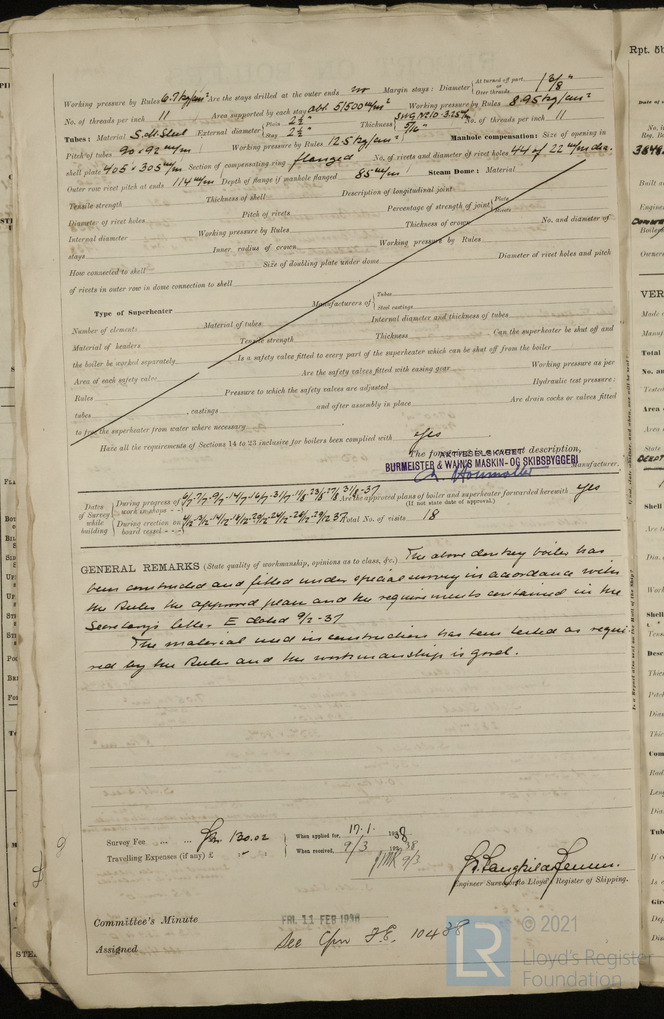 Working pressure by Rules 6.7 kg/cm² Are the stays drilled at the outer ends no Margin stays: Diameter { At turned off part, or Over threads 1 3/8"
No. of threads per inch 11 Area supported by each stay abt. 51500 m/m² Working pressure by Rules 8.95 kg/cm²
Tubes: Material S.M. Steel External diameter { Plain 2½" Stay 2½" Thickness { SWG No 10 = 3.25 m/m 5/16" No. of threads per inch 11
Pitch of tubes 90 × 92 m/m Working pressure by Rules 12.5 kg/cm² Manhole compensation: Size of opening in
shell plate 405 × 305 m/m Section of compensating ring flanged No. of rivets and diameter of rivet holes 44 of 22 m/m dia.
Outer row rivet pitch at ends 114 m/m Depth of flange if manhole flanged 85 m/m Steam Dome: Material
Tensile strength Thickness of shell Description of longitudinal joint
Diameter of rivet holes Pitch of rivets Percentage of strength of joint { Plate Rivets
Internal diameter Working pressure by Rules Thickness of crown No. and diameter of
stays Inner radius of crown Working pressure by Rules
How connected to shell Size of doubling plate under dome Diameter of rivet holes and pitch
of rivets in outer row in dome connection to shell
Type of Superheater Manufacturers of { Tubes Steel castings
Number of elements Material of tubes Internal diameter and thickness of tubes
Material of headers Tensile strength Thickness Can the superheater be shut off and
the boiler be worked separately Is a safety valve fitted to every part of the superheater which can be shut off from the boiler
Area of each safety valve Are the safety valves fitted with easing gear Working pressure as per
Rules Pressure to which the safety valves are adjusted Hydraulic test pressure:
tubes , castings and after assembly in place Are drain cocks or valves fitted
to free the superheater from water where necessary
Have all the requirements of Sections 14 to 23 inclusive for boilers been complied with yes
The foregoing is a correct description,
AKTIESELSKABET
BURMEISTER & WAIN'S MASKIN- OG SKIBSBYGGERI Manufacturer.
Dates of Survey while building
During progress of work in shops - - Are the approved plans of boiler and superheater forwarded herewith yes
(If not state date of approval.)
During erection on board vessel - - - Total No. of visits 18
GENERAL REMARKS (State quality of workmanship, opinions as to class, &c.) The above donkey boiler has
been constructed and fitted under special survey in accordance with
the Rules the approved plan and the requirements contained in the
Secretary's letter E dated 9/2-37
The material used in construction has been tested as requi-
red by the Rules and the workmanship is good.
Survey Fee ... ... Kr. 130.02 When applied for, 17.1. 1938
Travelling Expenses (if any) £ " : When received, 9/3 1938
9/3
Engineer Surveyor to Lloyd's Register of Shipping.
Committee's Minute FRI. 11 FEB 1938
Assigned See Cpn F.E. 10438
© 2021
LR
Lloyd's Register
Foundation
Rpt. 5b